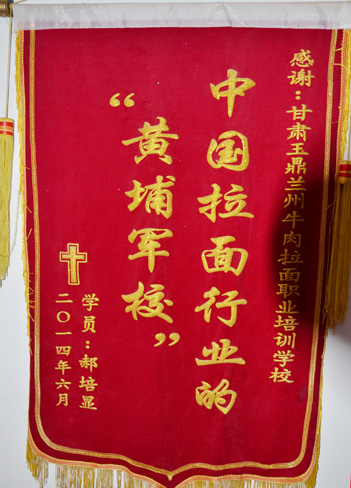 感谢：甘肃玉鼎兰州牛肉拉面职业培训学校
中国拉面行业的
“黄埔军校”
学员：郝培显
二〇一四年六月